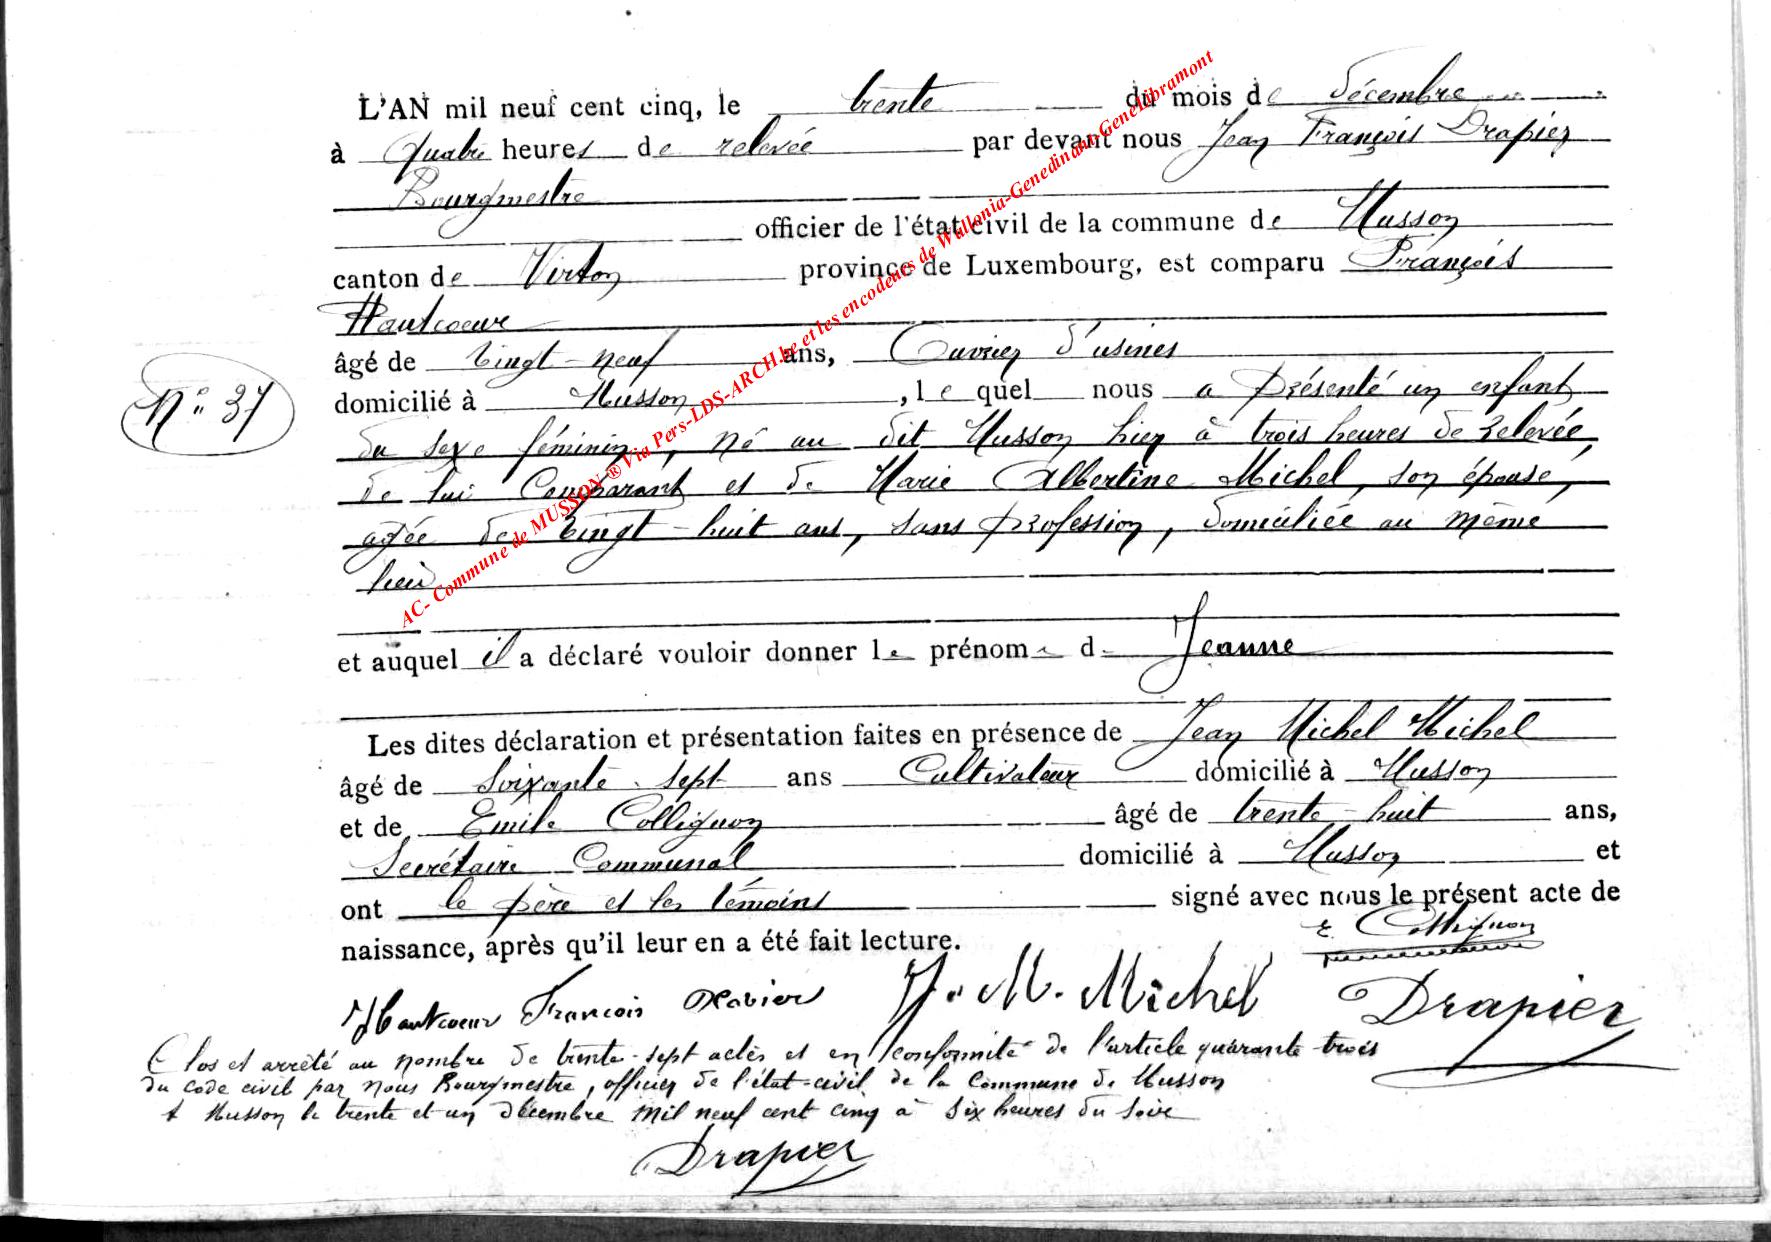 L'AN mil neuf cent cinq, le trente du mois de décembre
à quatre heures de relevée par devant nous Jean François Drapier
Bourgmestre
officier de l'état civil de la commune de Musson
canton de Virton province de Luxembourg, est comparu François
Hautcoeur
âgé de vingt-neuf ans, Ouvrier d'usines
domicilié à Musson, lequel nous a présenté un enfant
N° 37
du sexe féminin, né au dit Musson hier à trois heures de relevée,
de lui Comparant et de Marie Albertine Michel, son épouse,
agée de vingt-huit ans, sans profession, domiciliée au même
lieu
et auquel il a déclaré vouloir donner le prénom de Jeanne
Les dites déclaration et présentation faites en présence de Jean Michel Michel
âgé de soixante-sept ans Cultivateur domicilié à Musson
et de Emile Collignon âgé de trente-huit ans,
Secrétaire Communal domicilié à Musson et
ont le père et les témoins signé avec nous le présent acte de
naissance, après qu'il leur en a été fait lecture.
E. Collignon
Hautcoeur François Xavier J. M. Michel Drapier
Clos et arrêté au nombre de trente-sept actes et en conformité de l'article quarante-trois
du code civil par nous Bourgmestre, officier de l'état-civil de la Commune de Musson
A Musson le trente et un décembre mil neuf cent cinq à six heures du soir
Drapier
AC- Commune de MUSSON ® Via Pers-LDS-ARCH.be et les encodeurs de Wallonia-Genedinant-GeneLibramont